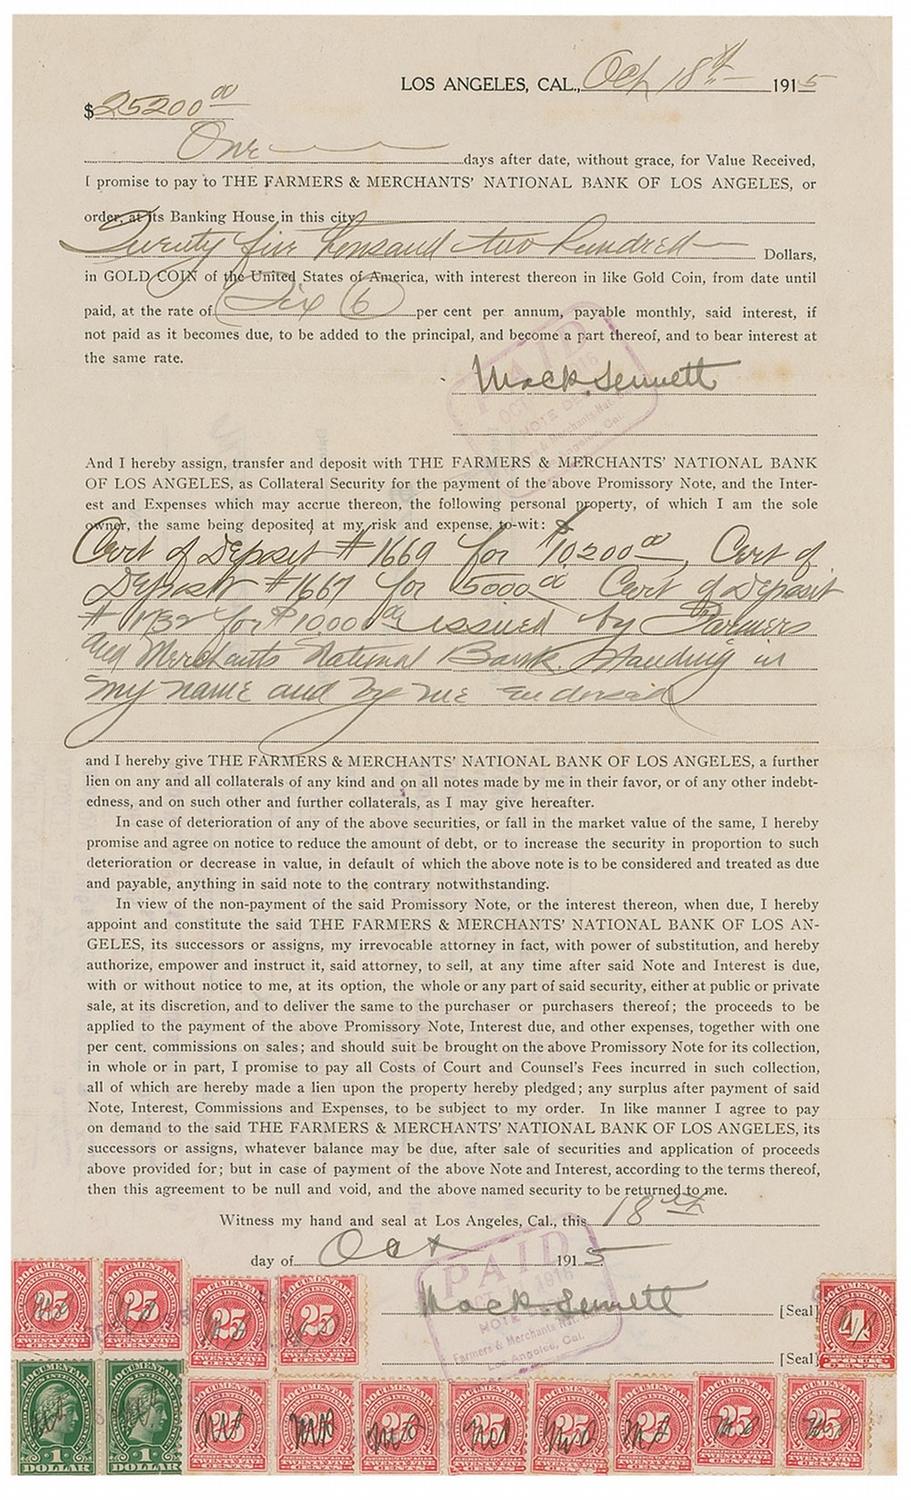 LOS ANGELES, CAL., Oct 18th 1915
$25200 00
One days after date, without grace, for Value Received,
I promise to pay to THE FARMERS & MERCHANTS' NATIONAL BANK OF LOS ANGELES, or
order, at its Banking House in this city,
Twenty five thousand two hundred Dollars,
in GOLD COIN of the United States of America, with interest thereon in like Gold Coin, from date until
paid, at the rate of Six 6 per cent per annum, payable monthly, said interest, if
not paid as it becomes due, to be added to the principal, and become a part thereof, and to bear interest at
the same rate.
Mack Sennett
PAID
And I hereby assign, transfer and deposit with THE FARMERS & MERCHANTS' NATIONAL BANK
OF LOS ANGELES, as Collateral Security for the payment of the above Promissory Note, and the Inter-
est and Expenses which may accrue thereon, the following personal property, of which I am the sole
owner, the same being deposited at my risk and expense, to-wit:
Cert of Deposit #1669 for $10,200 00, Cert of
Deposit #1667 for 5000 00 Cert of Deposit
# 1732 for $10,000 00 issued by Farmers
and Merchants National Bank. Standing in
my name and by me endorsed
and I hereby give THE FARMERS & MERCHANTS' NATIONAL BANK OF LOS ANGELES, a further
lien on any and all collaterals of any kind and on all notes made by me in their favor, or of any other indebt-
edness, and on such other and further collaterals, as I may give hereafter.
In case of deterioration of any of the above securities, or fall in the market value of the same, I hereby
promise and agree on notice to reduce the amount of debt, or to increase the security in proportion to such
deterioration or decrease in value, in default of which the above note is to be considered and treated as due
and payable, anything in said note to the contrary notwithstanding.
In view of the non-payment of the said Promissory Note, or the interest thereon, when due, I hereby
appoint and constitute the said THE FARMERS & MERCHANTS' NATIONAL BANK OF LOS AN-
GELES, its successors or assigns, my irrevocable attorney in fact, with power of substitution, and hereby
authorize, empower and instruct it, said attorney, to sell, at any time after said Note and Interest is due,
with or without notice to me, at its option, the whole or any part of said security, either at public or private
sale, at its discretion, and to deliver the same to the purchaser or purchasers thereof; the proceeds to be
applied to the payment of the above Promissory Note, Interest due, and other expenses, together with one
per cent. commissions on sales; and should suit be brought on the above Promissory Note for its collection,
in whole or in part, I promise to pay all Costs of Court and Counsel's Fees incurred in such collection,
all of which are hereby made a lien upon the property hereby pledged; any surplus after payment of said
Note, Interest, Commissions and Expenses, to be subject to my order. In like manner I agree to pay
on demand to the said THE FARMERS & MERCHANTS' NATIONAL BANK OF LOS ANGELES, its
successors or assigns, whatever balance may be due, after sale of securities and application of proceeds
above provided for; but in case of payment of the above Note and Interest, according to the terms thereof,
then this agreement to be null and void, and the above named security to be returned to me.
Witness my hand and seal at Los Angeles, Cal., this 18th
day of Oct 1915
PAID
1916
NOTE
Farmers & Merchants Nat.
Los Angeles, Cal.
Mack Sennett [Seal]
[Seal]
DOCUMENTARY 25 DOCUMENTARY 25 DOCUMENTARY 25 DOCUMENTARY 25 4
DOCUMENTARY 1 DOLLAR DOCUMENTARY 1 DOLLAR 25 25 25 25 25 25 25 25